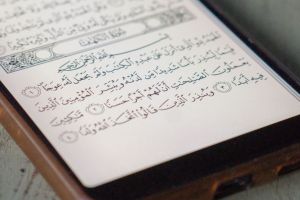 سُورَةُ الكَهْفِ
بِسْمِ ٱللَّهِ ٱلرَّحْمَٰنِ ٱلرَّحِيمِ
ٱلْحَمْدُ لِلَّهِ ٱلَّذِىٓ أَنزَلَ عَلَىٰ عَبْدِهِ ٱلْكِتَٰبَ وَلَمْ يَجْعَل لَّهُۥ عِوَجَا ١
قَيِّمًا لِّيُنذِرَ بَأْسًا شَدِيدًا مِّن لَّدُنْهُ وَيُبَشِّرَ ٱلْمُؤْمِنِينَ ٱلَّذِينَ
يَعْمَلُونَ ٱلصَّٰلِحَٰتِ أَنَّ لَهُمْ أَجْرًا حَسَنًا ٢ مَّٰكِثِينَ
فِيهِ أَبَدًا ٣ وَيُنذِرَ ٱلَّذِينَ قَالُوا۟ ٱتَّخَذَ ٱللَّهُ وَلَدًا ٤